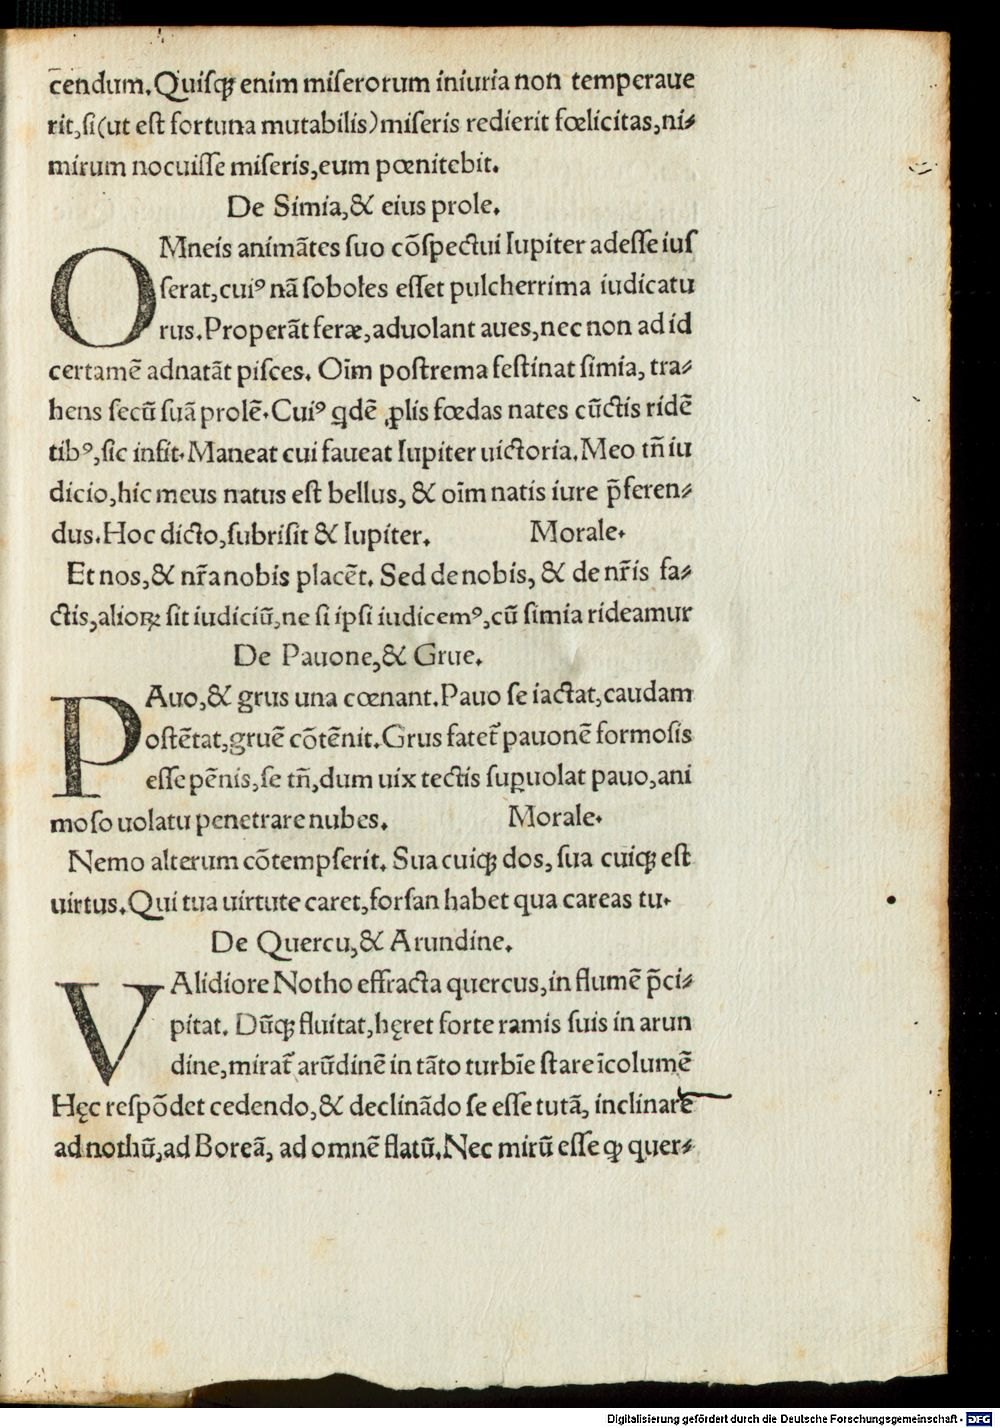 c̄endum. Quisqꝫ enim miserorum iniuria non temperaue
rit, si (ut est fortuna mutabilis) miseris redierit fœlicitas, ni⸗
mirum nocuisse miseris, eum pœnitebit.
De Simia, & eius prole.
OMneis animātes suo cōspectui Iupiter adesse ius
serat, cuiꝰ nā soboles esset pulcherrima iudicatu
rus. Properāt feræ, aduolant aues, nec non ad id
certamē adnatāt pisces. Oīm postrema festinat simia, tra⸗
hens secū suā prolē. Cuiꝰ qdē ꝓlis fœdas nates cūctis ridē
tibꝰ, sic infit. Maneat cui faueat Iupiter uictoria. Meo tn̄ iu
dicio, hic meus natus est bellus, & oīm natis iure p̄feren⸗
dus. Hoc dicto, subrisit & Iupiter. Morale.
Et nos, & nr̄a nobis placēt. Sed de nobis, & de nr̄is fa⸗
ctis, alioꝝ sit iudiciū, ne si ipsi iudicemꝰ, cū simia rideamur
De Pauone, & Grue.
PAuo, & grus una cœnant. Pauo se iactat, caudam
ostētat, gruē cōtēnit. Grus fatet᷑ pauonē formosis
esse pēnis, se tn̄, dum uix tectis suꝑuolat pauo, ani
moso uolatu penetrare nubes. Morale.
Nemo alterum cōtempserit. Sua cuiqꝫ dos, sua cuiqꝫ est
uirtus. Qui tua uirtute caret, forsan habet qua careas tu.
De Quercu, & Arundine.
VAlidiore Notho effracta quercus, in flumē p̄ci⸗
pitat. Dūqꝫ fluitat, hęret forte ramis suis in arun
dine, mirat᷑ arūdinē in tāto turbīe stare īcolumē
Hęc respōdet cedendo, & declinādo se esse tutā, inclinare
ad nothū, ad Boreā, ad omnē flatū. Nec mirū esse ꝙ quer⸗
Digitalisierung gefördert durch die Deutsche Forschungsgemeinschaft - DFG